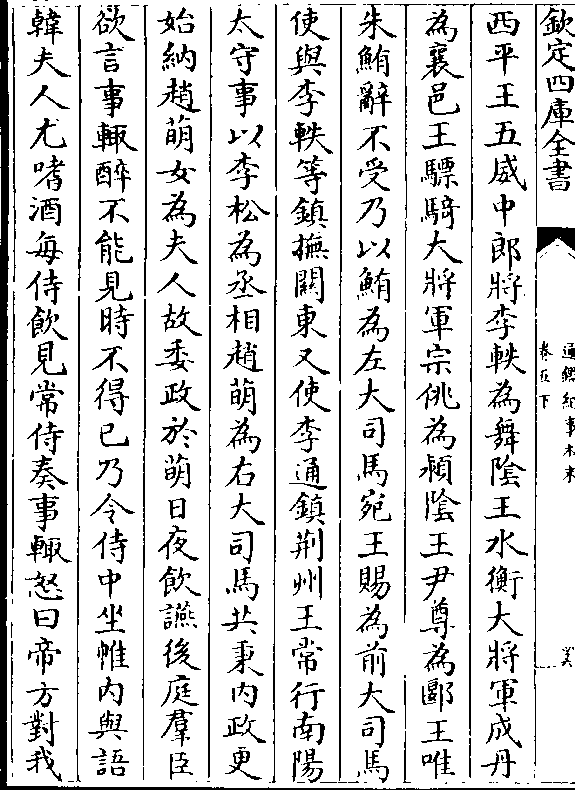 欽定四庫全書
通鑑紀事本末
卷五下
西平王五威中郎將李軼為舞陰王水衡大將軍成丹
為襄邑王驃騎大將軍宗佻為潁陰王尹尊為郾王唯
朱鮪辭不受乃以鮪為左大司馬宛王賜為前大司馬
使與李軼等鎮撫關東又使李通鎮荆州王常行南陽
太守事以李松為丞相趙萌為右大司馬共秉内政更
始納趙萌女為夫人故委政於萌日夜飲讌後庭羣臣
欲言事輒醉不能見時不得已乃令侍中坐帷内與語
韓夫人尤嗜酒每侍飲見常侍奏事輒怒曰帝方對我